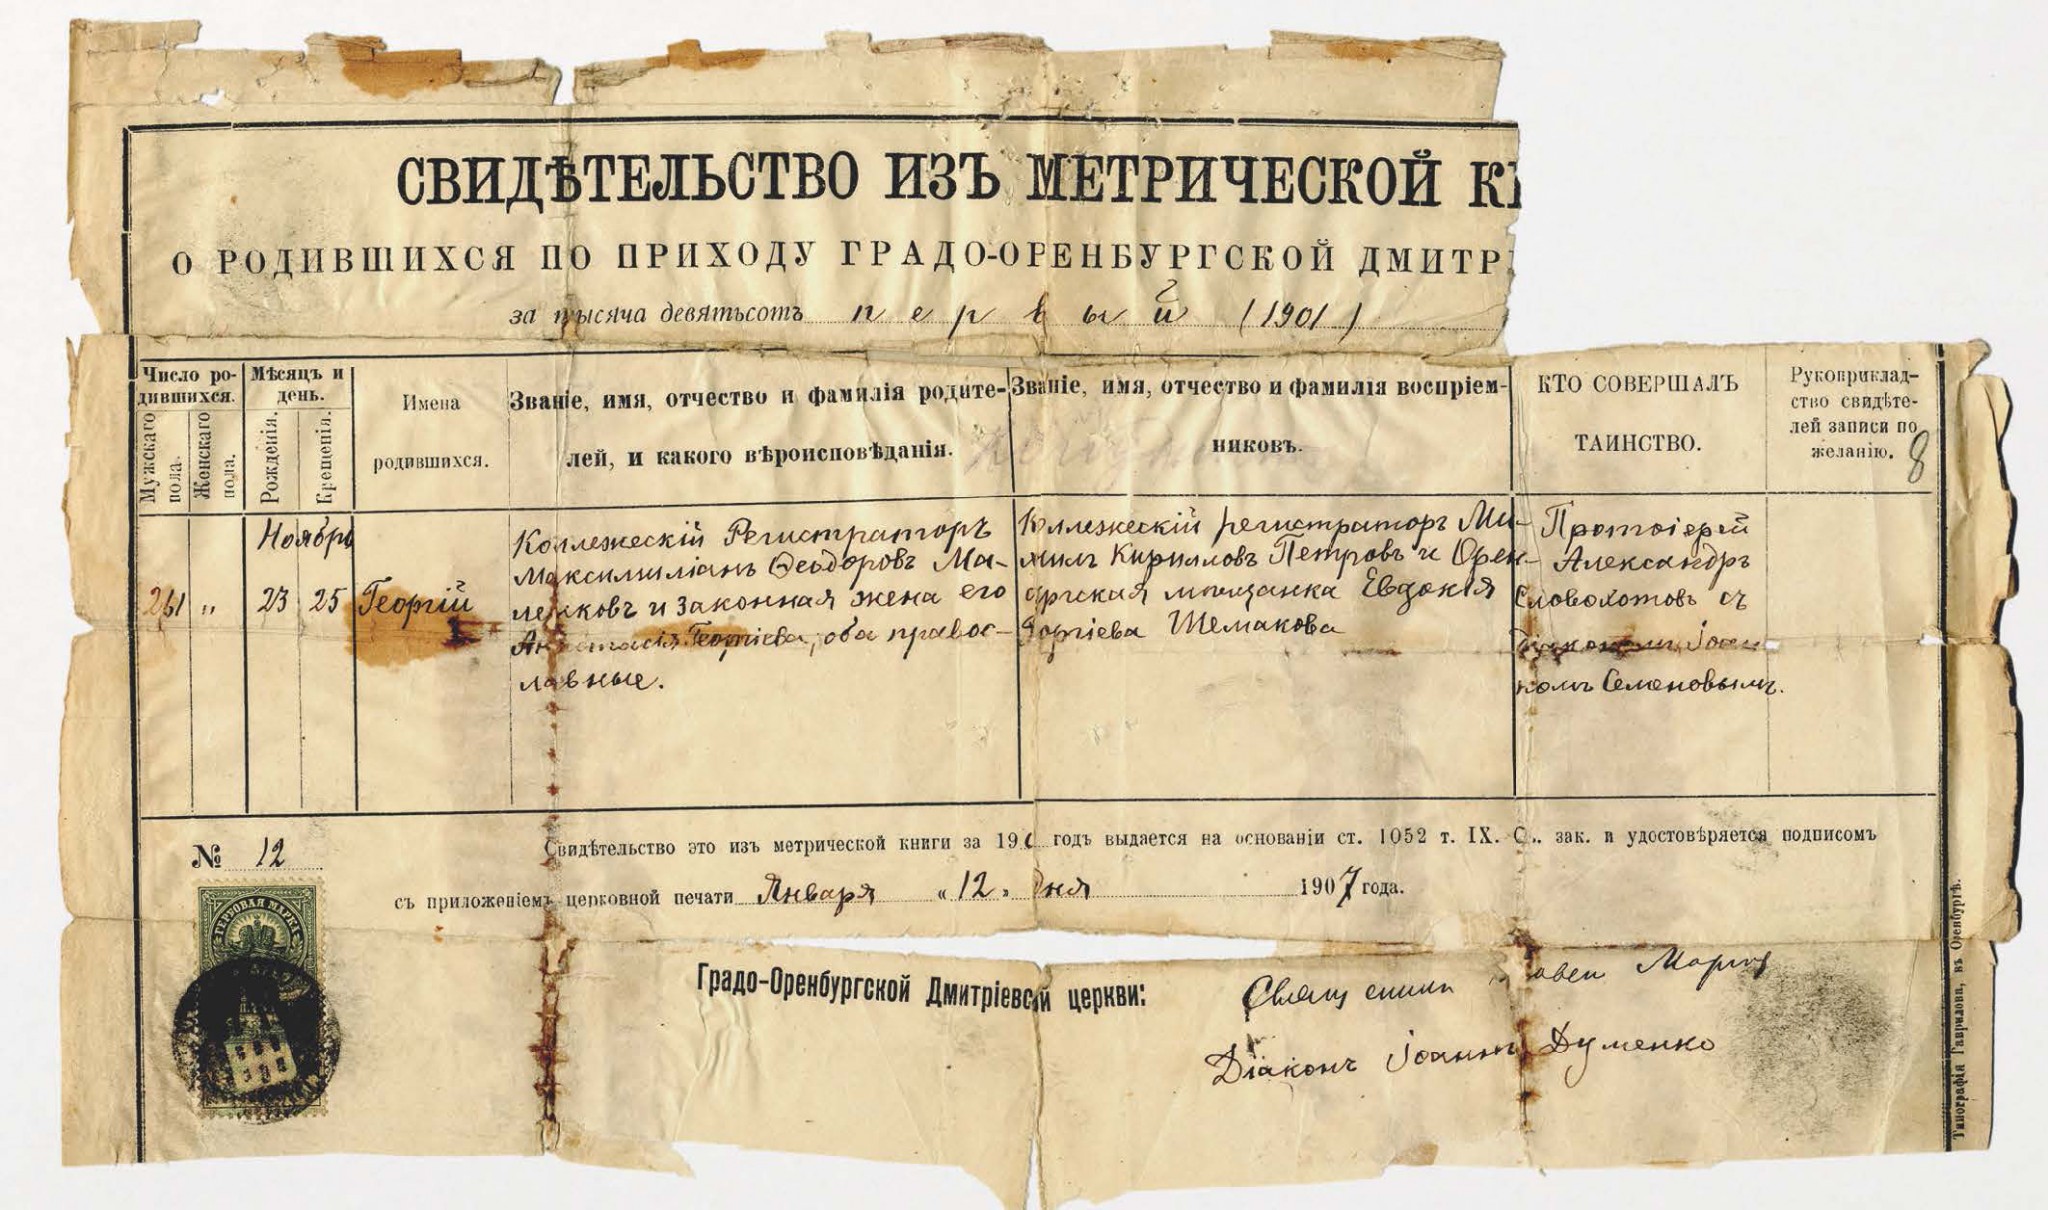 СВИДѢТЕЛЬСТВО ИЗЪ МЕТРИЧЕСКОЙ К
О РОДИВШИХСЯ ПО ПРИХОДУ ГРАДО-ОРЕНБУРГСКОЙ ДМИТР
за тысяча девятьсотъ первый (1901)
Число ро-
дившихся.
Мужскаго
пола.
Женскаго
пола.
Мѣсяцъ и
день.
Рожденія.
Крещенія.
Имена
родившихся.
Званіе, имя, отчество и фамилія родите-
лей, и какого вѣроисповѣданія.
Званіе, имя, отчество и фамилія воспріем-
никовъ.
КТО СОВЕРШАЛЪ
ТАИНСТВО.
Рукоприклад-
ство свидѣте-
лей записи по
желанію.
8
Ноябрь
251 " 23 25 Георгій
Коллежескій Регистраторъ
Максимиліанъ Ѳеодоровъ Ма-
ленковъ и законная жена его
Анастасія Георгіева, оба право-
славные.
Коллежескій регистраторъ Ми-
хаилъ Кирилловъ Петровъ и Орен-
бургская мѣщанка Евдокія
Георгіева Шемакова
Протоіерей
Александръ
Словохотовъ съ
діакономъ Іоан-
номъ Семеновымъ.
№ 12
Свидѣтельство это изъ метрической книги за 190 годъ выдается на основаніи ст. 1052 т. IX. С. зак. и удостовѣряется подписомъ
съ приложеніемъ церковной печати Января « 12 » дня 1907 года.
ГЕРБОВАЯ МАРКА
Градо-Оренбургской Дмитріевской церкви:
Священникъ
Діаконъ Іоаннъ Думенко
Типографія Гаврилова, въ Оренбургѣ.